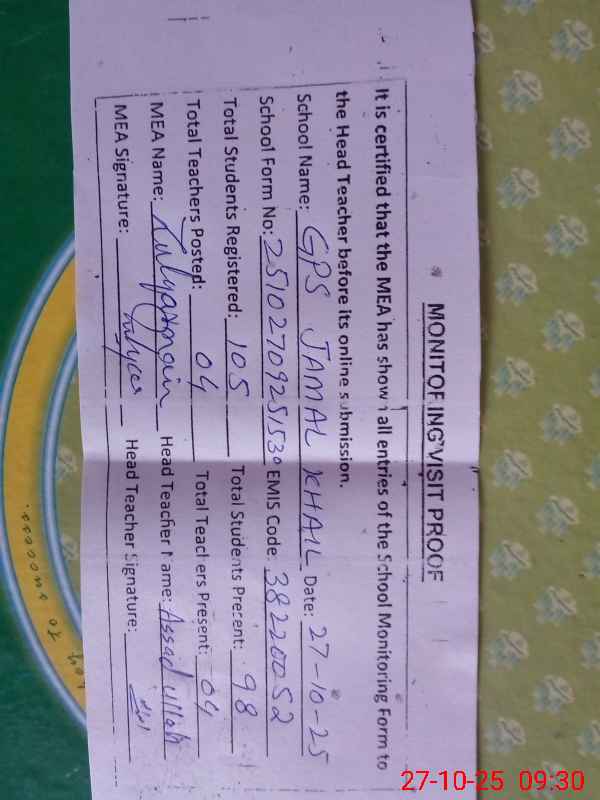 MONITORING VISIT PROOF
It is certified that the MEA has shown all entries of the School Monitoring Form to
the Head Teacher before its online submission.
School Name: GPS JAMAL KHAIL Date: 27-10-25
School Form No: 25102709251530 EMIS Code: 38220052
Total Students Registered: 105 Total Students Present: 98
Total Teachers Posted: 04 Total Teachers Present: 04
MEA Name: Head Teacher Name: Assad Ullah
MEA Signature: Head Teacher Signature:
to success.
27-10-25 09:30